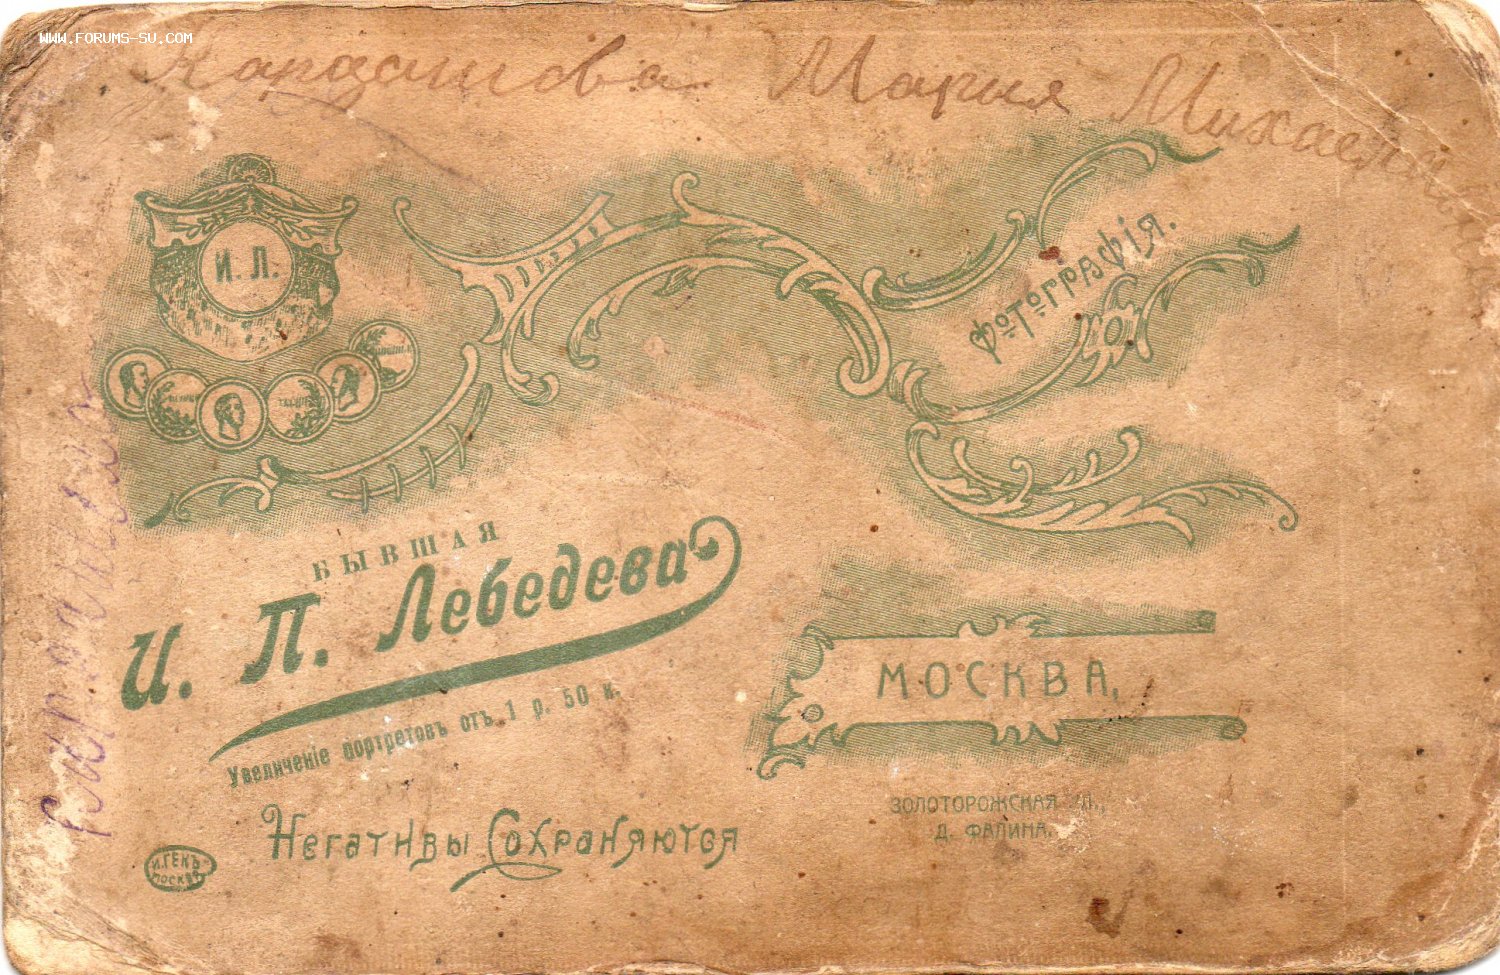 WWW.FORUMS-SU.COM
Кардашова Мария Михаелина
И. Л.
ФОТОГРАФІЯ.
БЫВШАЯ
И. П. Лебедева
Увеличеніе портретовъ отъ 1 р. 50 к.
Негативы Сохраняются
И. ГЕКЪ
МОСКВА
МОСКВА,
ЗОЛОТОРОЖСКАЯ УЛ.,
Д. ФАЛИНА.